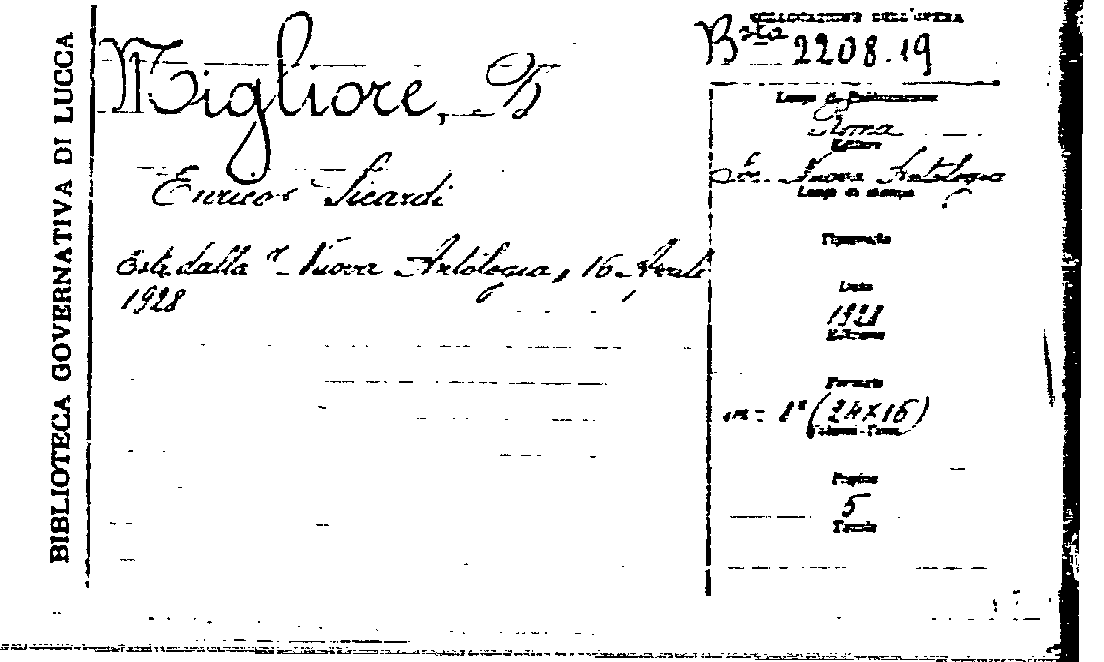 BIBLIOTECA GOVERNATIVA DI LUCCA
Migliore, B
Enrico Sicardi
Estr. dalla "Nuova Antologia, 16 Aprile
1928
COLLOCAZIONE DELL'OPERA
B.sta 2208.19
Luogo di Pubblicazione
Roma
Editore
Nuova Antologia
Luogo di stampa
Tipografia
Data
1928
Edizione
Formato
in- 8° (24x16)
Pagine
5
Tavole